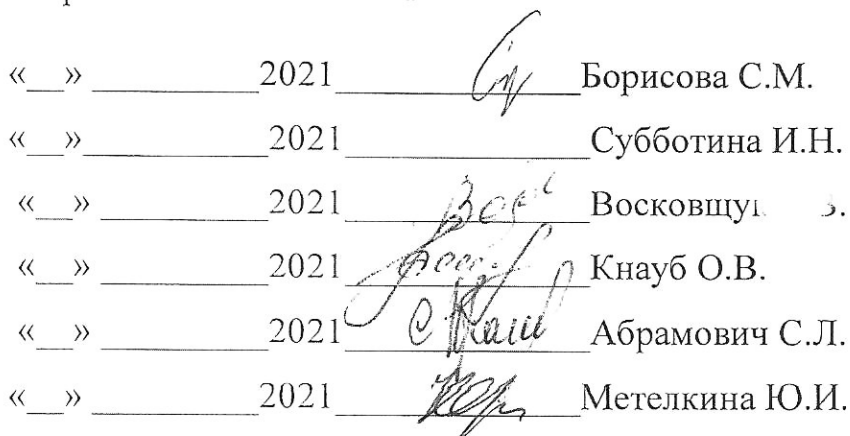 «__» ____________2021__________________Борисова С.М.
«__»_____________2021__________________Субботина И.Н.
«__» ____________2021__________________
«__» ____________2021__________________Кнауб О.В.
«__» ____________2021__________________Абрамович С.Л.
«__» ____________2021__________________Метелкина Ю.И.